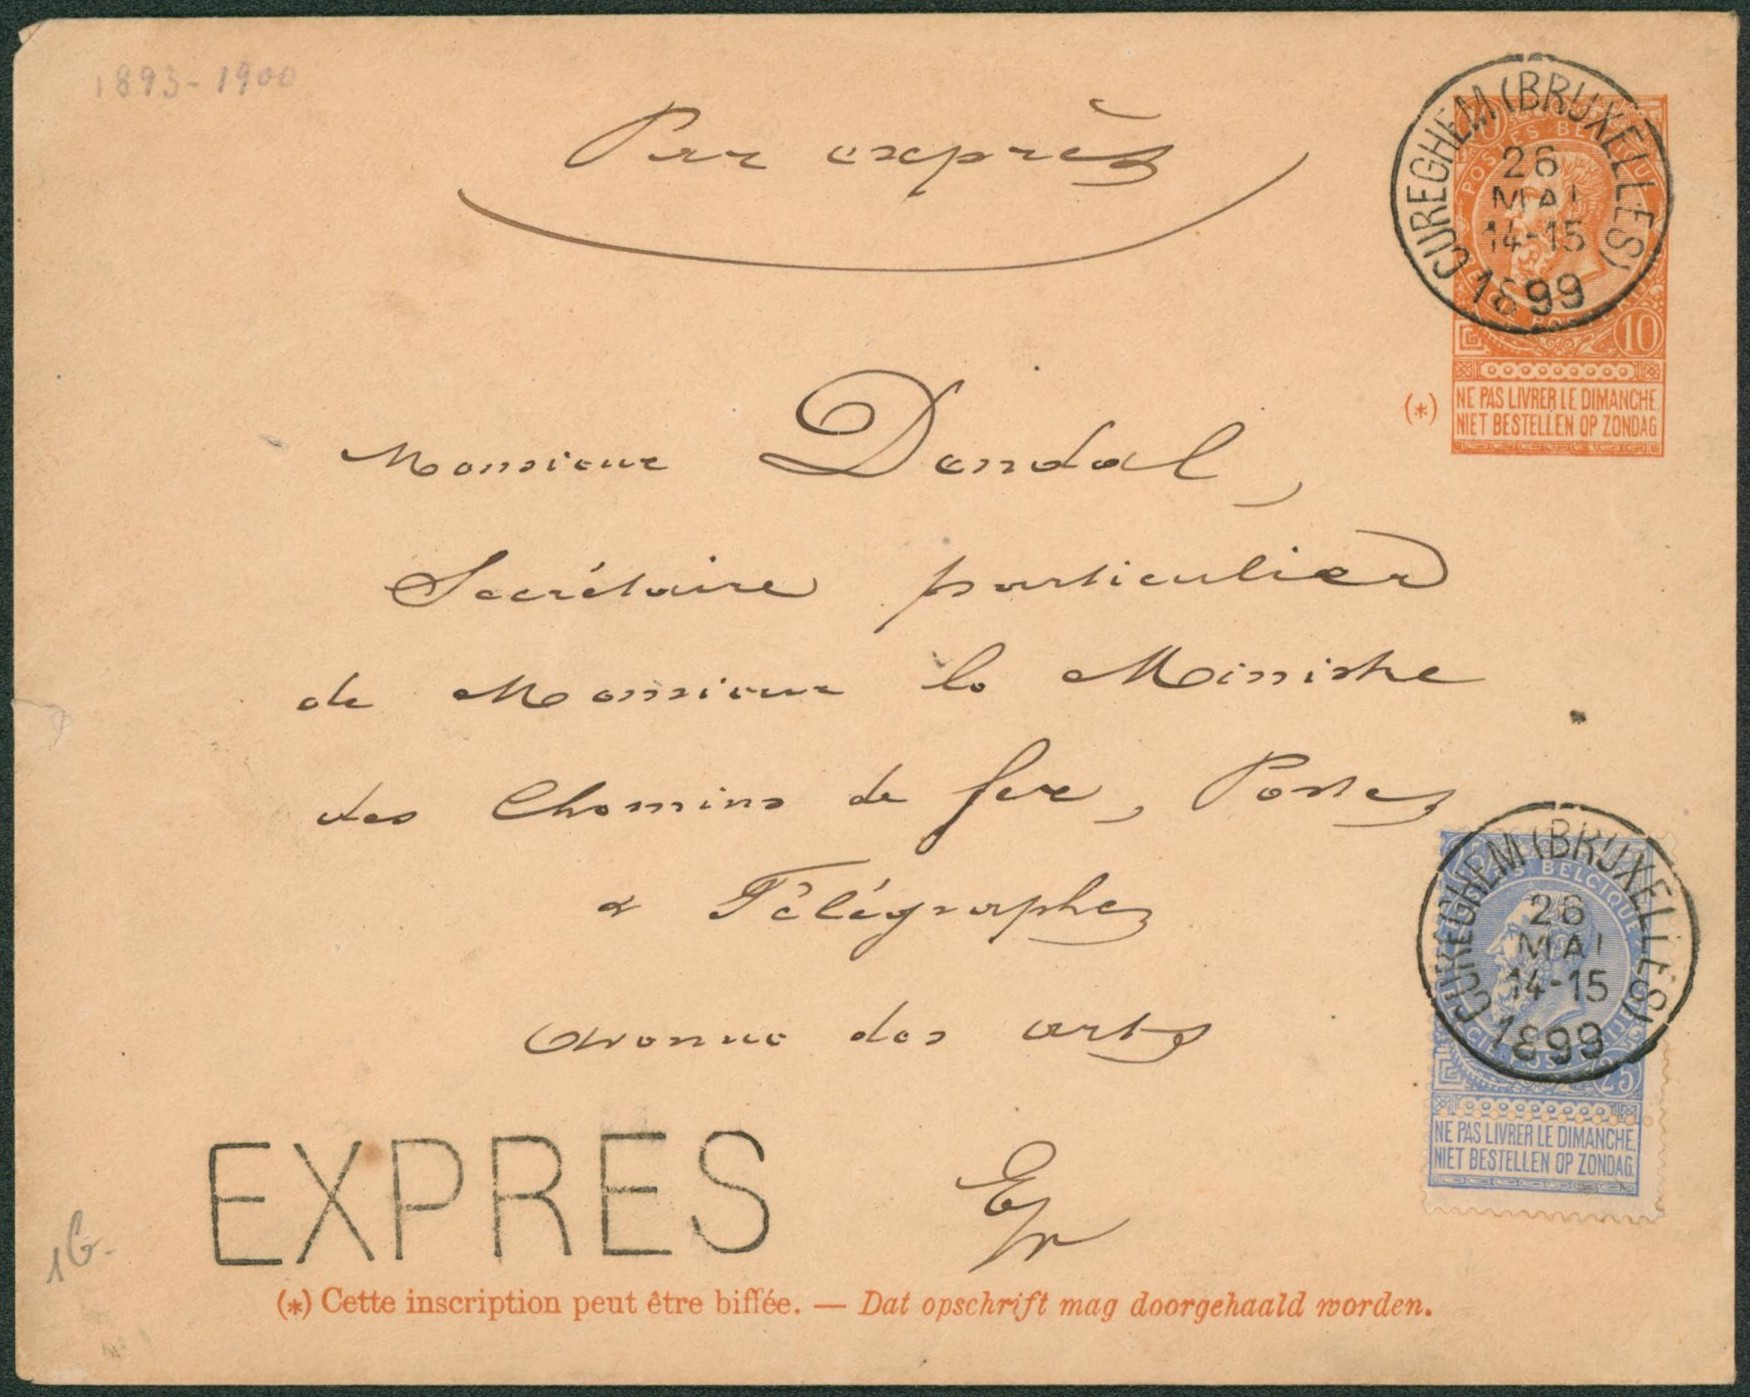 1893-1900
Par exprès
CUREGHEM (BRUXELLES)
26
MAI
14-15
1899
10
POSTES BELGIQUE
10
(*)
NE PAS LIVRER LE DIMANCHE.
NIET BESTELLEN OP ZONDAG
Monsieur Dendal,
Secrétaire particulier
de Monsieur le Ministre
des Chemins de fer, Postes
& Télégraphes
Avenue des arts
CUREGHEM (BRUXELLES)
26
MAI
14-15
1899
BELGIQUE
25
NE PAS LIVRER LE DIMANCHE.
NIET BESTELLEN OP ZONDAG.
EXPRES
E/V
(*) Cette inscription peut être biffée. — Dat opschrift mag doorgehaald worden.